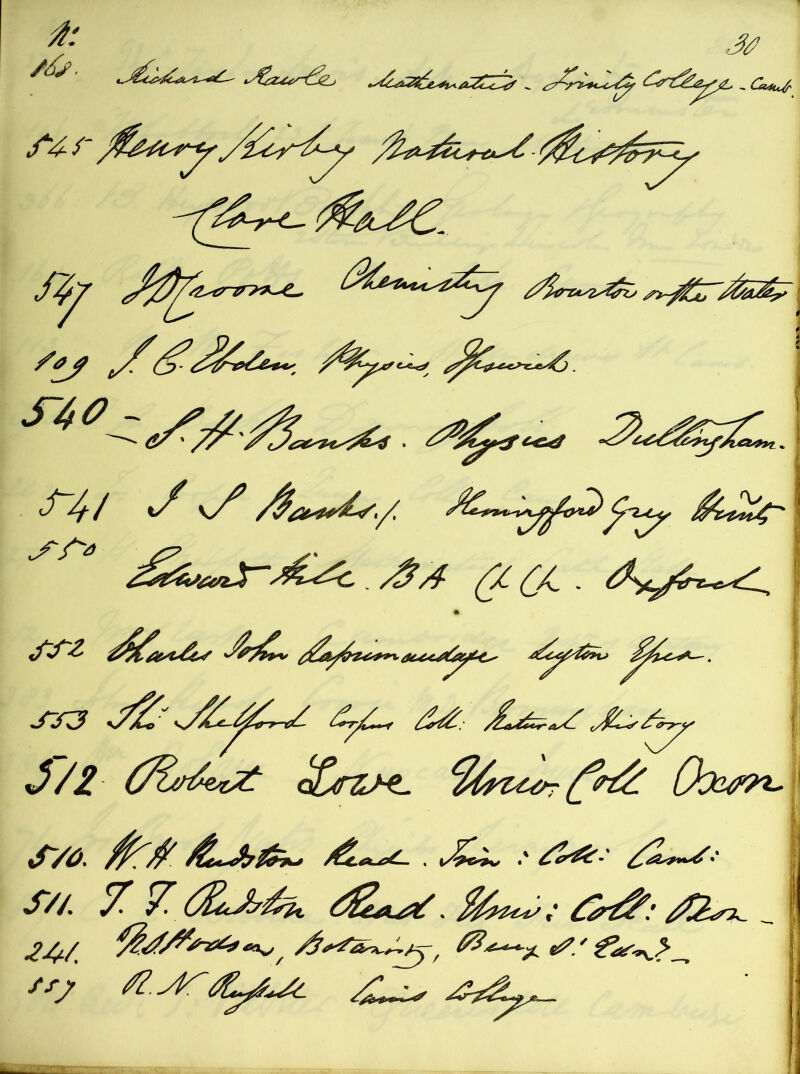 No. 30
168. Richard Rawle Mathematics - Trinity College - Camb.
545 Henry Kirby Natural History
Clare Hall.
547 J D Croome Chemistry Bourton on the Water
109 J. C. Ebden, Physics, Ipswich.
540 = S. H. Banks. Physics Dullingham.
541 J S Banks./. Hemingford Grey Hunts
550 Edward Hill. BA Ch Ch. Oxford
552 Charles John Laprimaudaye Leyton Essex.
553 Thos Shelford Corpus Coll: Natural History
512 Robert Lowe Univ: Coll Oxon
510. W. H Rudston Read. Trin: Coll: Camb:
511. T. F. Rudston Read. Univ: Coll: Oxon -
241. N.S. Hodson, Botanist, Bury St. Edm.
557 R. N. Russell Caius College